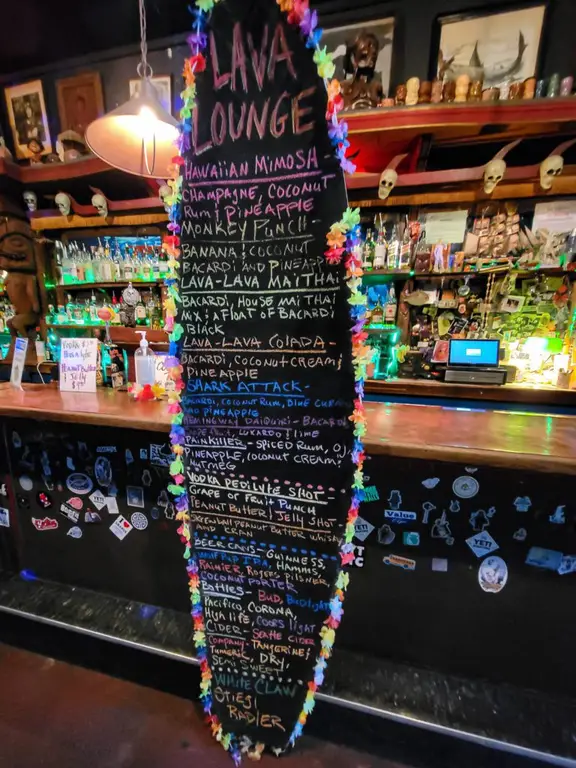 LAVA
LOUNGE
HAWAIIAN MIMOSH
CHAMPAGNE, COCONUT
RUM & PINEAPPLE
MONKEY PUNCH -
BANANA & COCONUT
BACARDI AND PINEAPP
LAVA-LAVA MAITHAI
BACARDI, HOUSE MAI THAI
MIX & A FLOAT OF BACARDI
BLACK
LAVA-LAVA COLADA-
BACARDI, COCONUT CREAM &
PINEAPPLE
SHARK ATTACK-
BACARDI, COCONUT RUM, BLUE CURA
AND PINEAPPLE
HEMINGWAY DAIQUIRI- BACARDI
LUXARDO & LIME
PAINKILLER- SPICED RUM, OJ
PINEAPPLE, COCONUT CREAM &
NUTMEG
VODKA PEDILYTE SHOT-
GRAPE OF FRUIT PUNCH
PEANUT BUTTER & JELLY SHOT
SKREWBALL PEANUT BUTTER WHISKY
AND KRAN
BEER CANS- GUINNESS,
IPA, HAMMS,
RAINIER, ROGERS PILSNER,
COCONUT PORTER
BOTTLES- BUD, BUDLIGHT
PACIFICO, CORONA,
HIGH LIFE, COORS LIGHT
CIDER- SEATTLE CIDER
COMPANY- TANGERINE &
TUMERIC, DRY,
SEMI SWEET
WHITE CLAW
STIEGL
RADLER
VODKA
PEDIALYTE
PEANUT BUTTER
& JELLY
Value
YETI
YETI